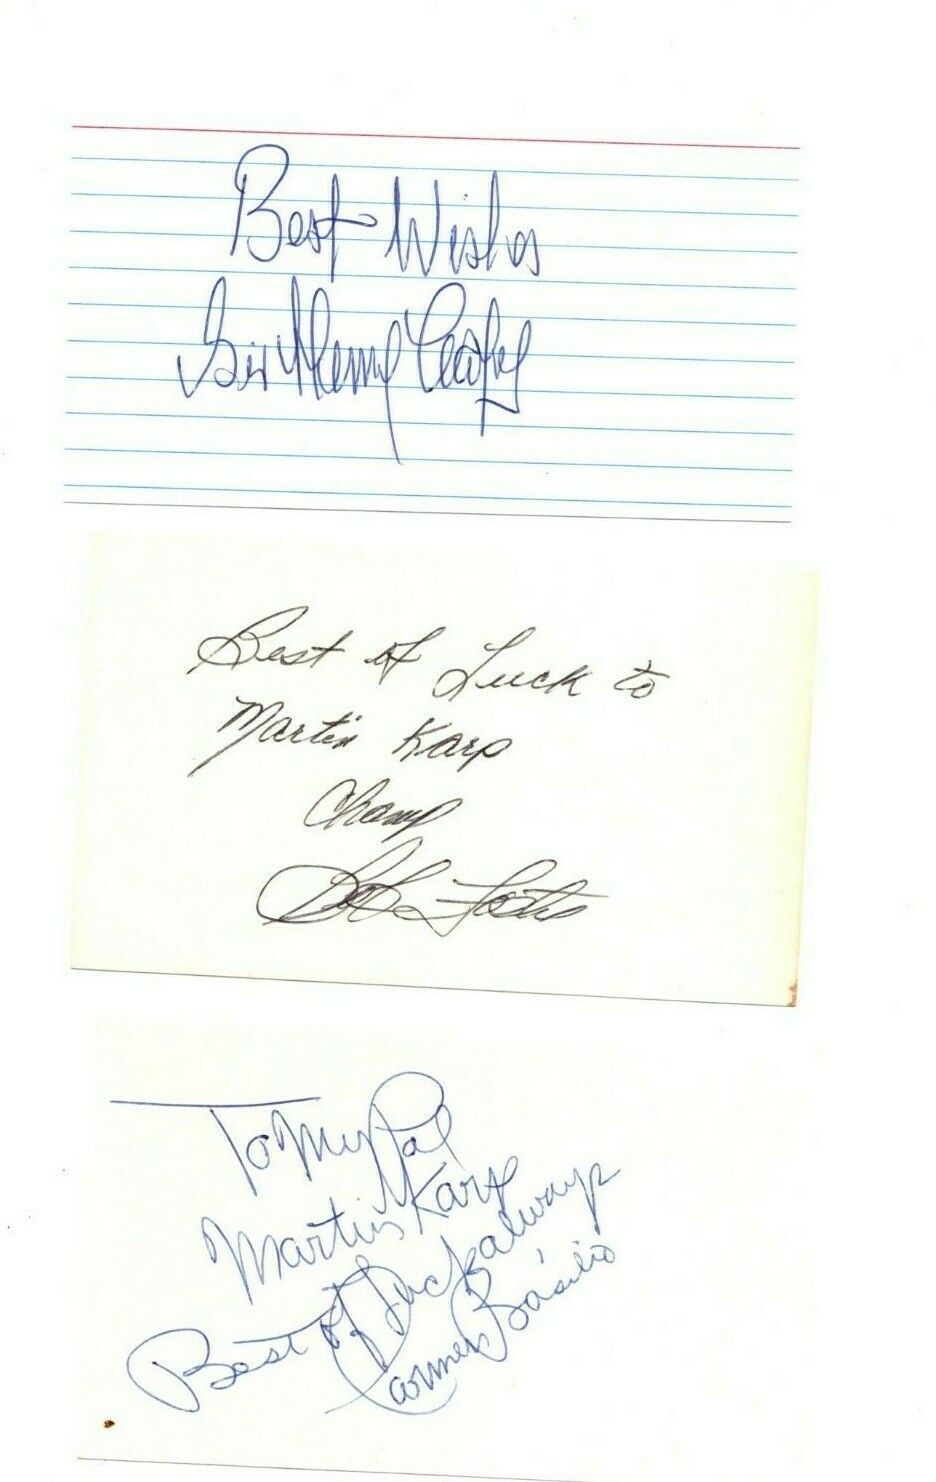 Best Wishes
Sir Henry
Best of Luck to
Martin Karp
Champ
Bob Foster
To My Pal
Martin Karp
Best of Luck always
Carmen Basilio